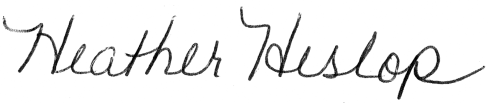 Heather Heslop